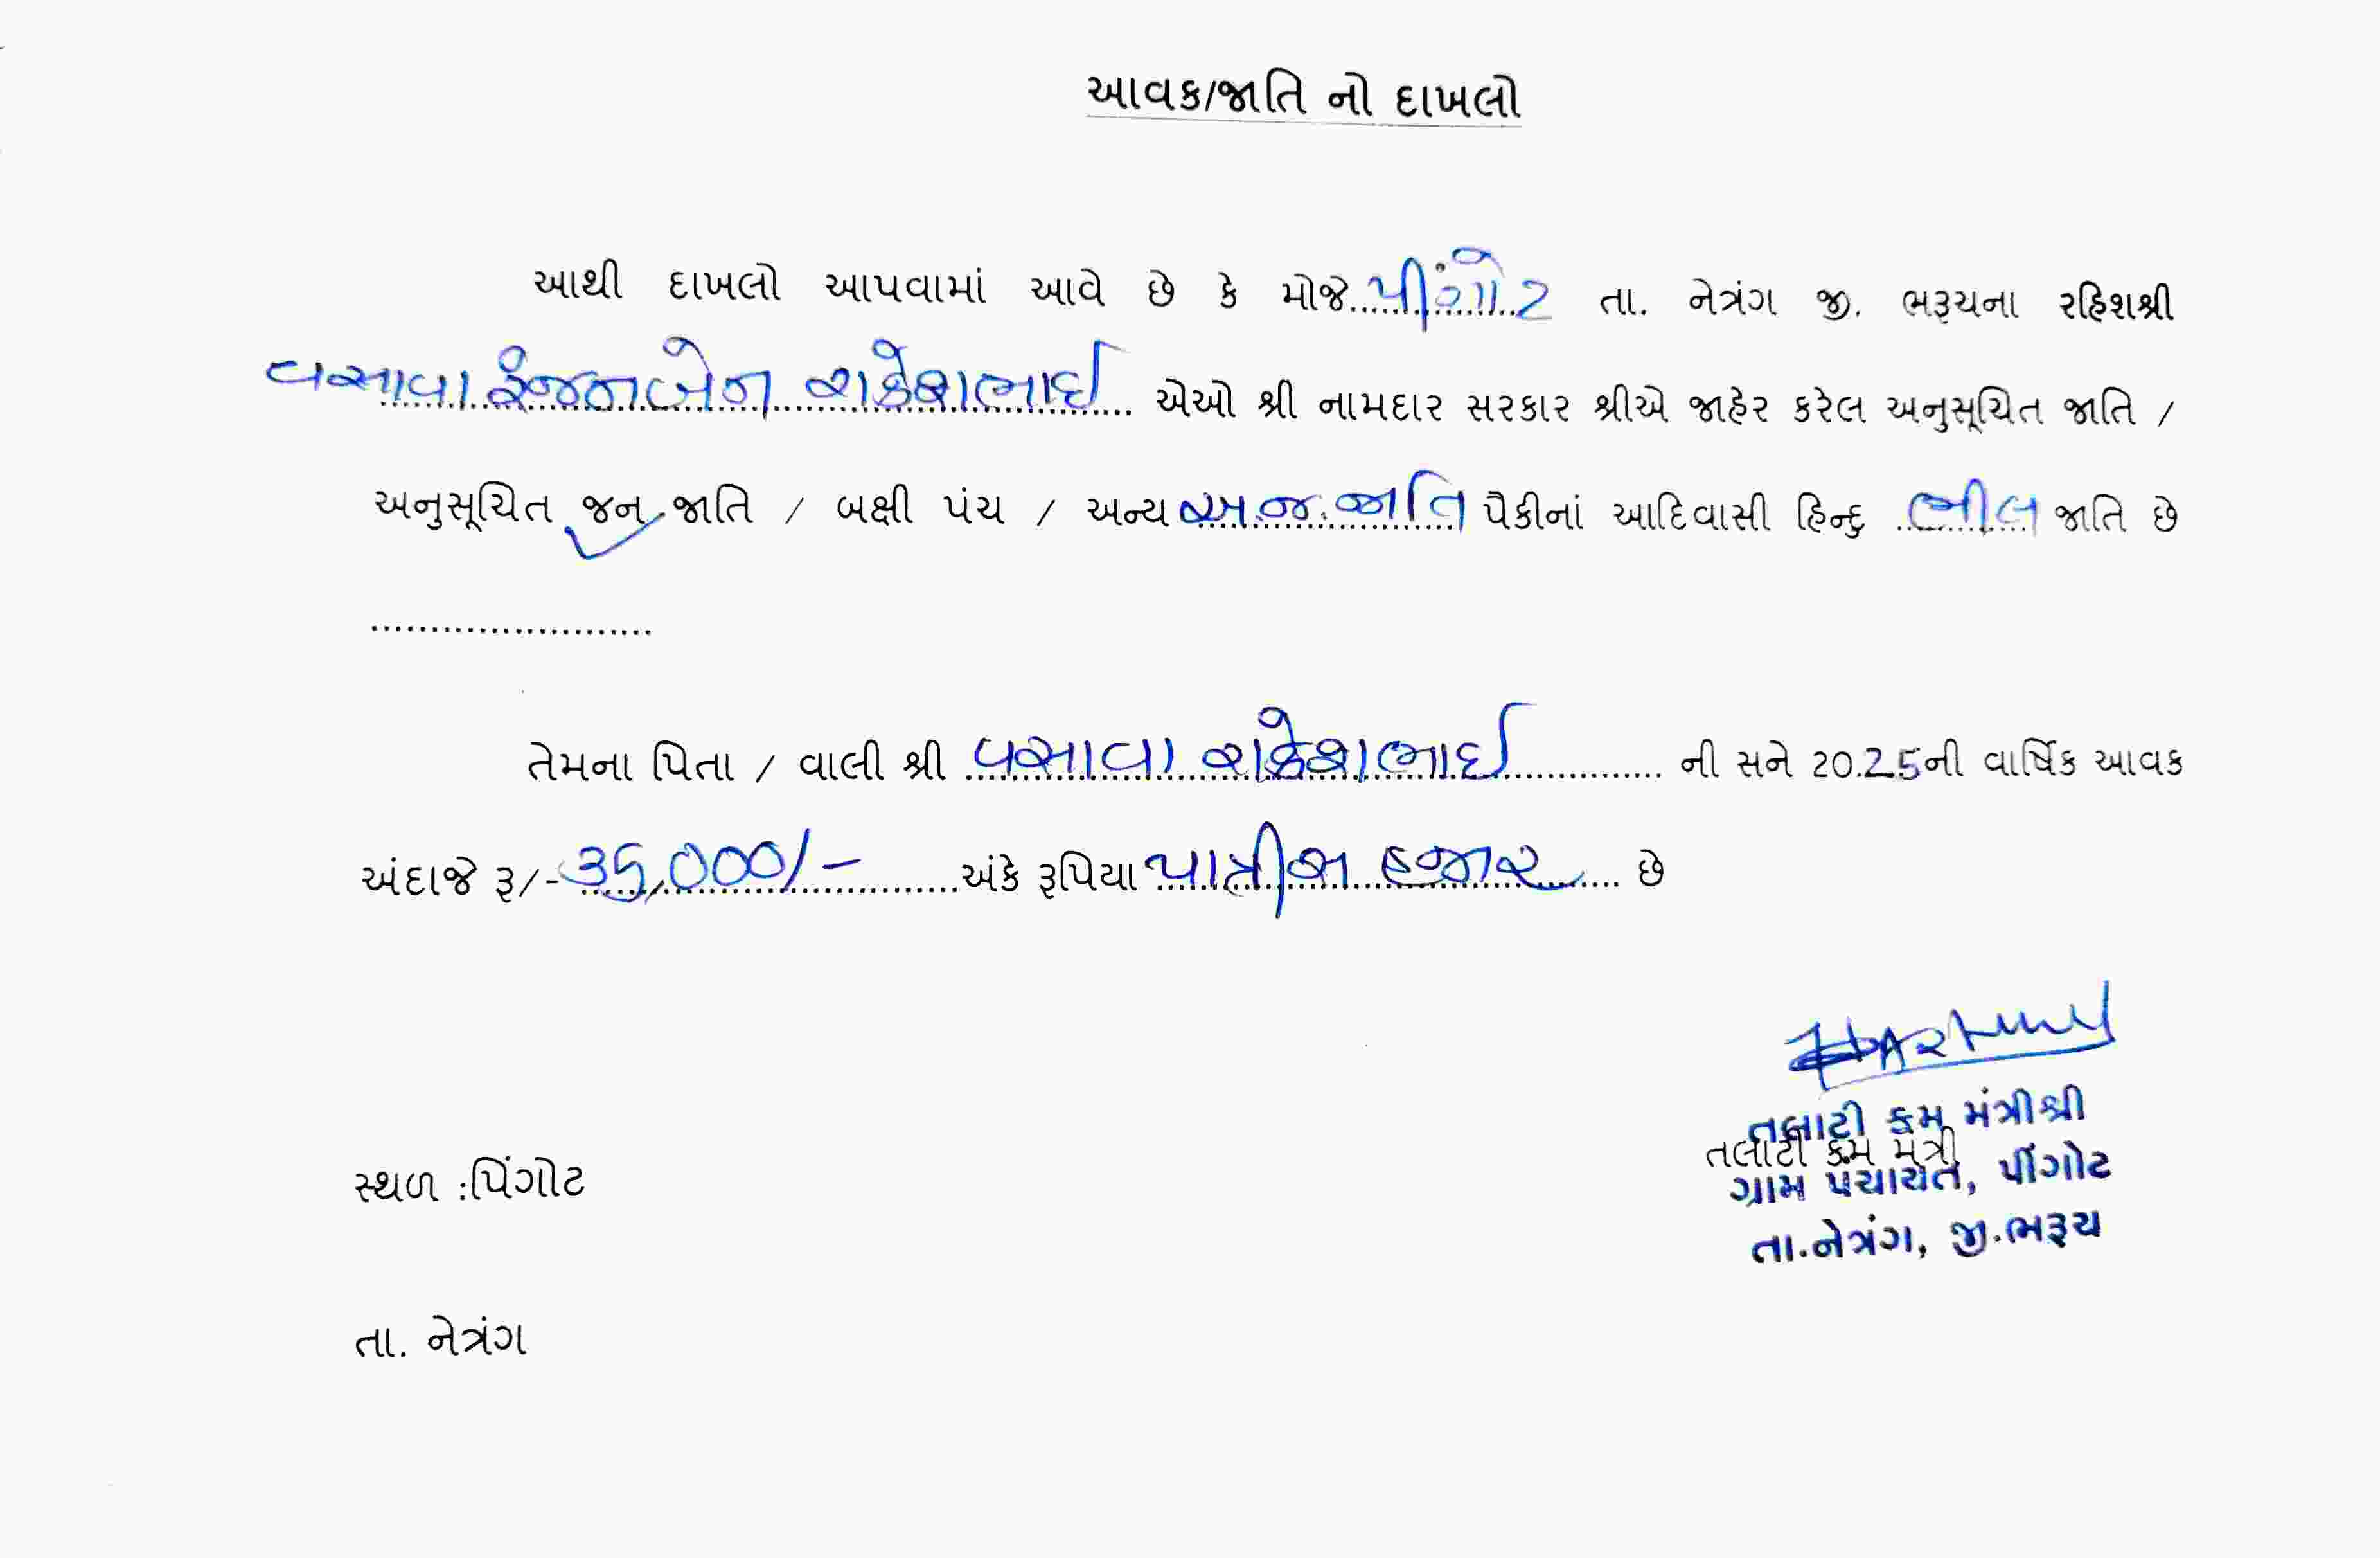 આવક/જાતિ નો દાખલો
આથી દાખલો આપવામાં આવે છે કે મોજે..પીંગોટ તા. નેત્રંગ જી. ભરૂચના રહિશશ્રી
વસાવા રંજનબેન રાકેશભાઈ એઓ શ્રી નામદાર સરકાર શ્રીએ જાહેર કરેલ અનુસૂચિત જાતિ /
અનુસૂચિત જન જાતિ / બક્ષી પંચ / અન્ય અ.જ.જાતિ પૈકીનાં આદિવાસી હિન્દુ ભીલ જાતિ છે
........................
તેમના પિતા / વાલી શ્રી વસાવા રાકેશભાઈ ની સને 20.25ની વાર્ષિક આવક
અંદાજે રૂ/-35,000/- અંકે રૂપિયા પાત્રીસ હજાર છે
તલાટી કમ મંત્રીશ્રી
તલાટી કમ મંત્રી
ગ્રામ પંચાયત, પીંગોટ
સ્થળ :પિંગોટ
તા.નેત્રંગ, જી.ભરૂચ
તા. નેત્રંગ